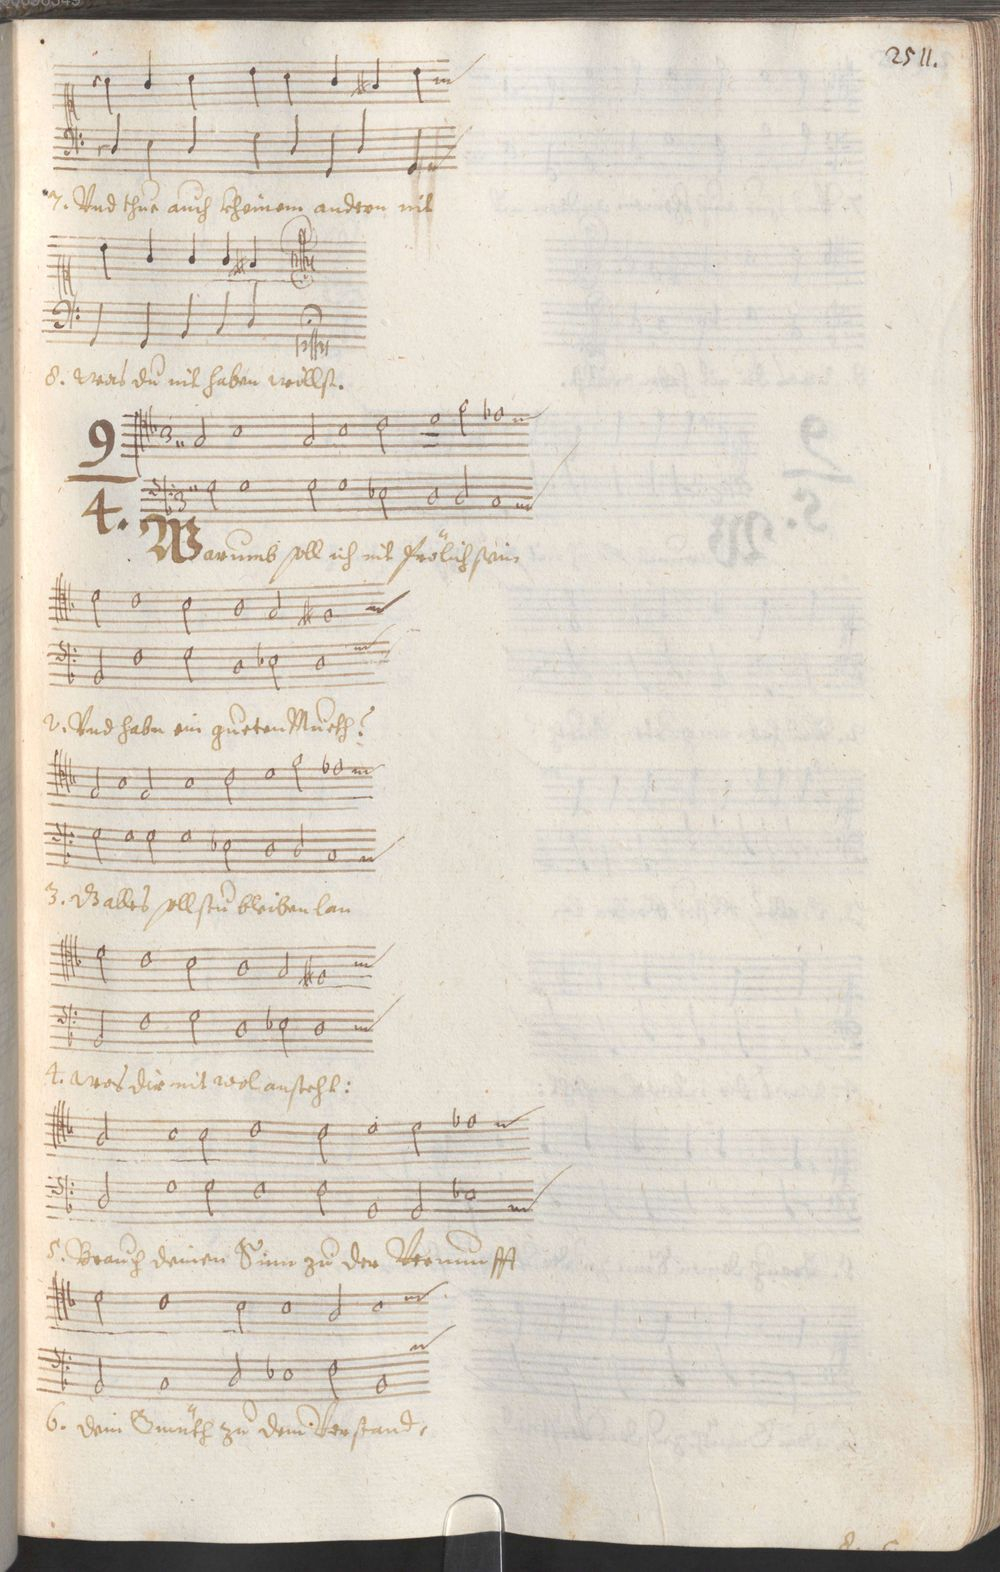 2511.
7. Vnd thue auch kheinem andern nit
8. was du nit haben willst.
9
4.
Warumb soll ich nit frölich sein
2. Vnd habn ein gueten Mueth?
3. alles sollstu bleiben lan
4. was dir nit wol ansteht:
5. Brauch deinen Sinn zu der Vernunfft
6. dein Gmüth zu dem Verstand,